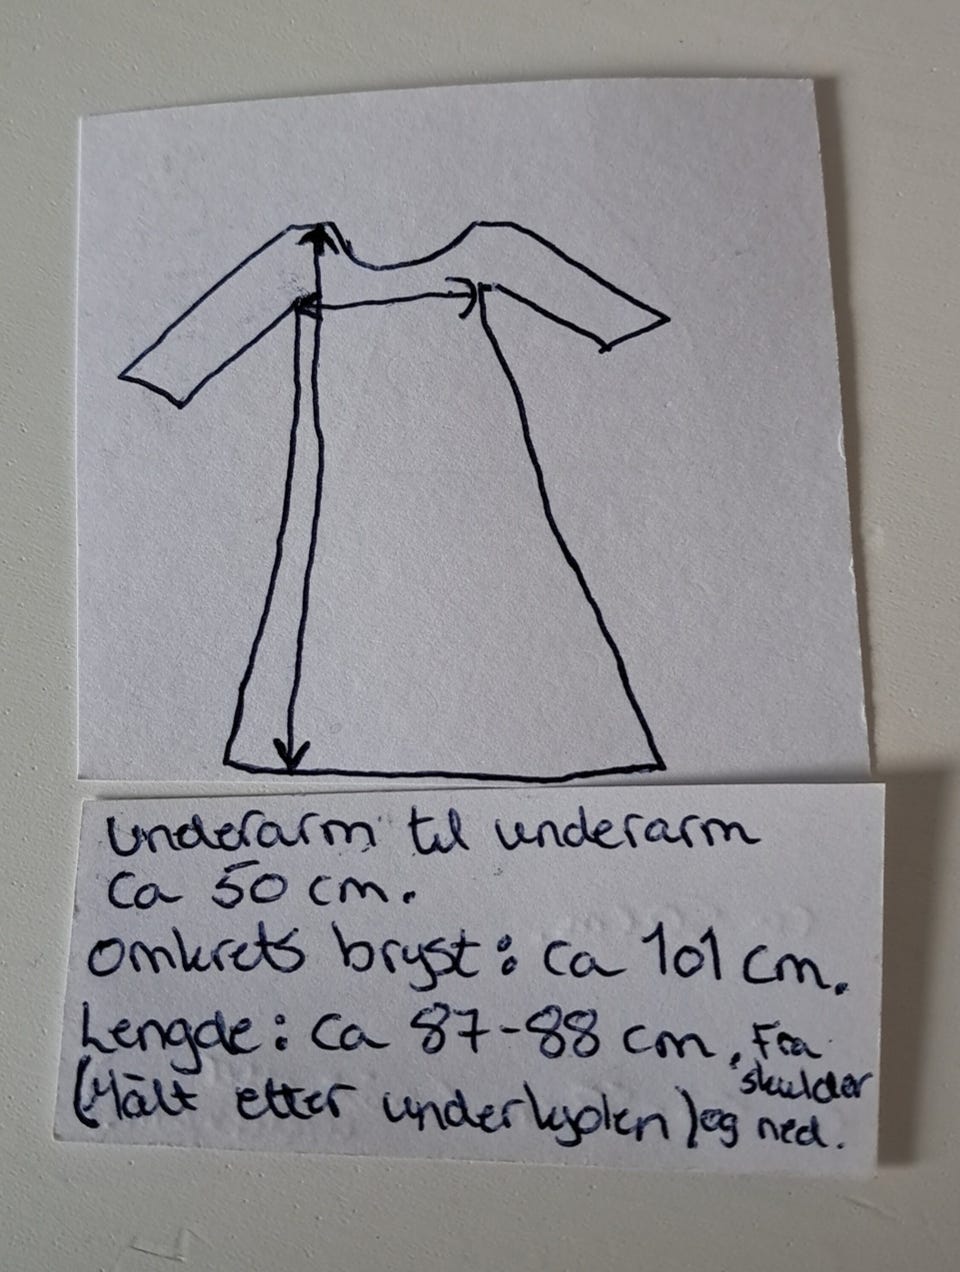 Underarm til underarm
Ca 50 cm.
Omkrets bryst: ca 101 cm.
Lengde: ca 87-88 cm, Fra skulder
(Målt etter underkjolen) og ned.